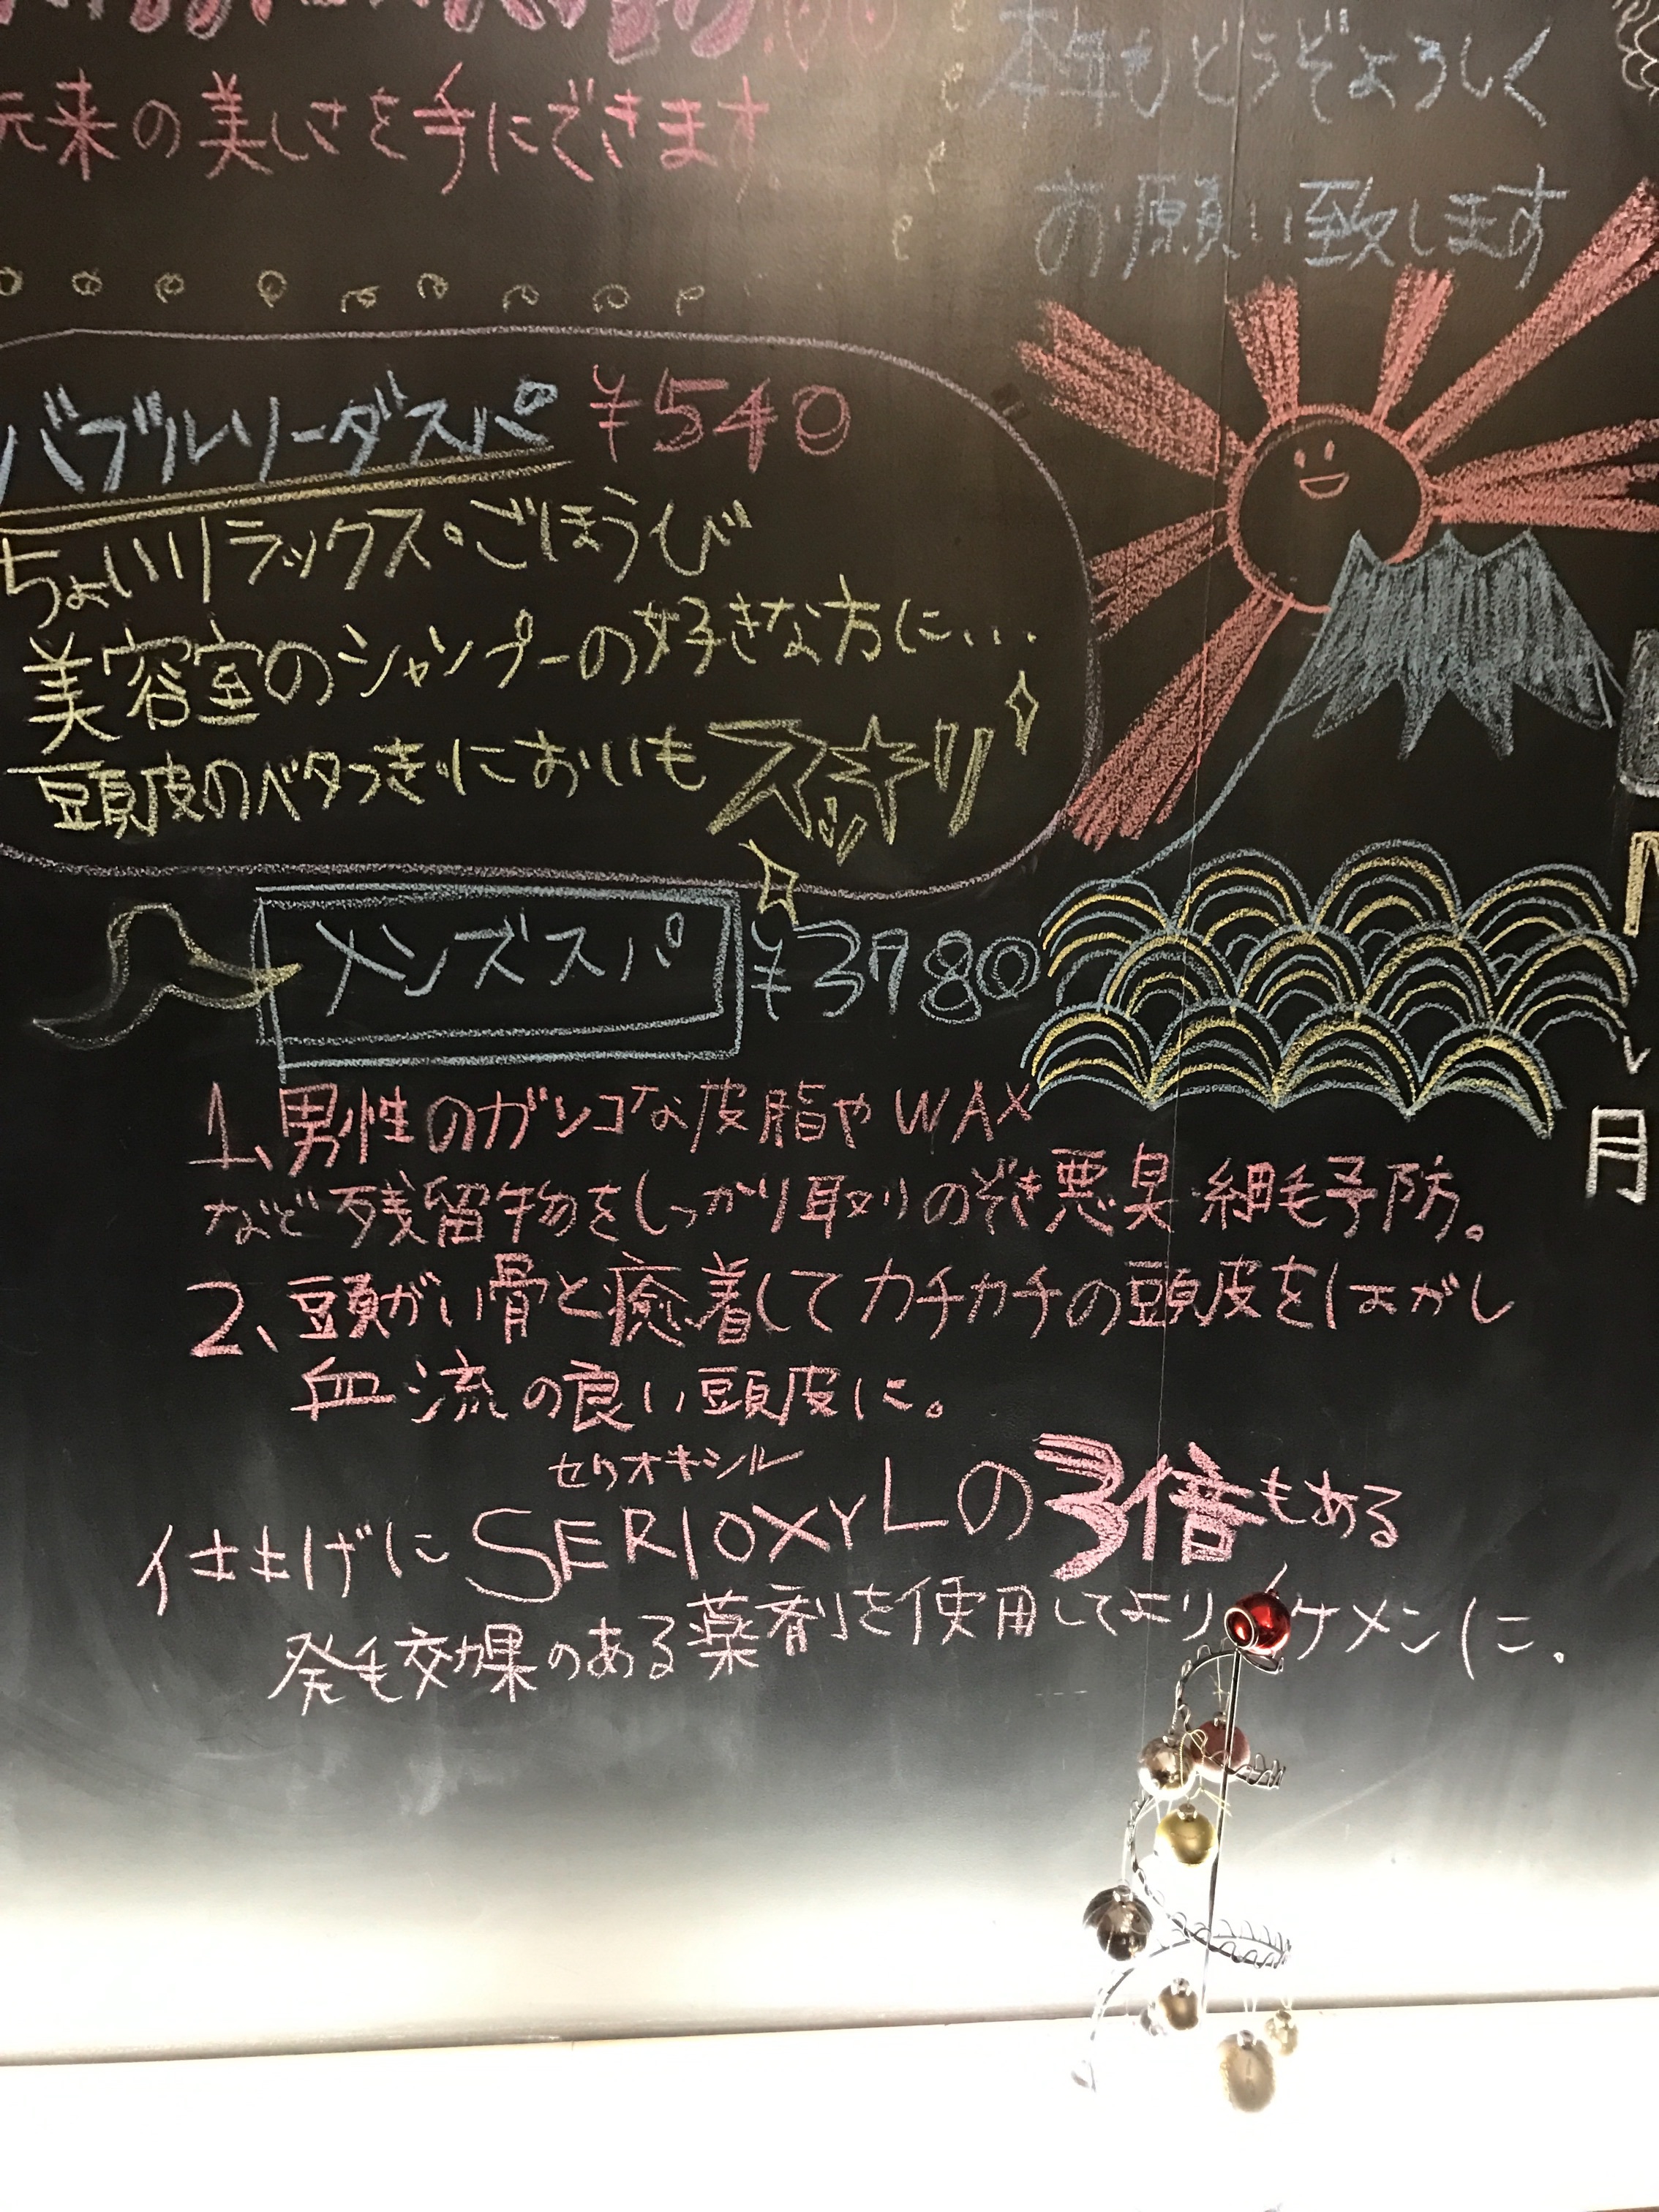 元来の美しさを手にできます
本年もどうぞよろしく
お願い致します
バブルソーダスパ ¥540
ちょいリラックス。ごほうび
美容室のシャンプーの好きな方に...
頭皮のベタつき、においもスッキリ
メンズスパ ¥3780
1、男性のガンコな皮脂やWAX
など残留物をしっかり取りのぞき悪臭・細毛予防。
2、頭がい骨と癒着してカチカチの頭皮をはがし
血流の良い頭皮に。
セリオキシル
仕上げにSERIOXYLの3倍もある
発毛効果のある薬剤を使用してよりイケメンに.
月